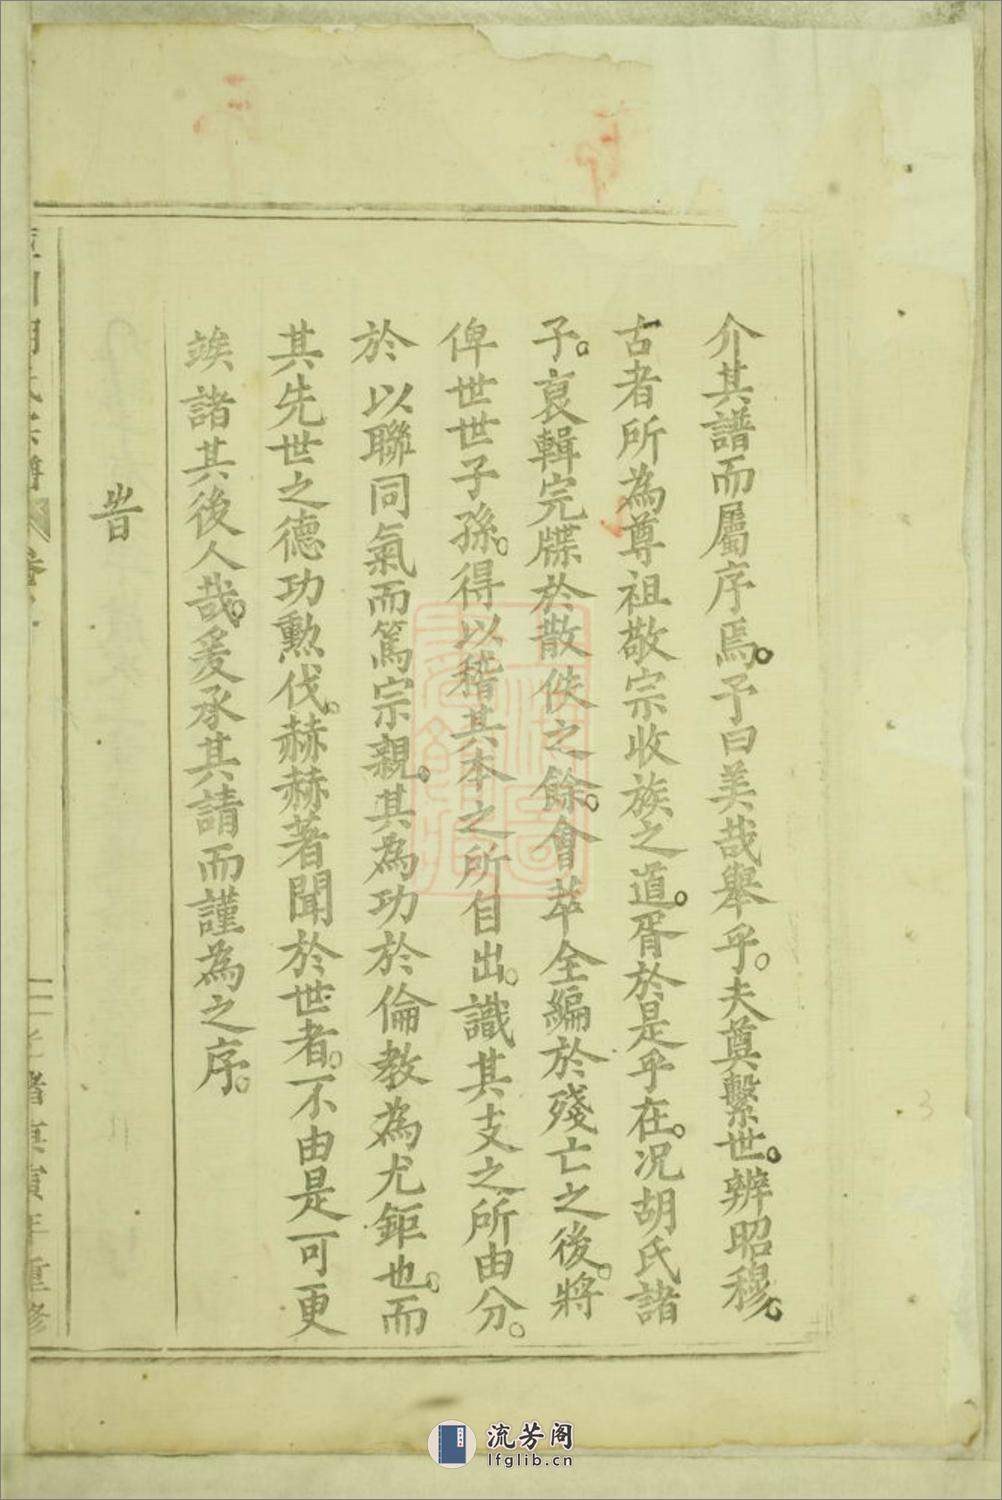 介其譜而屬序焉。予曰美哉舉乎。夫奠繫世。辨昭穆。
古者所為尊祖敬宗收族之道。胥於是乎在。况胡氏諸
子。裒輯完牒於散佚之餘。會萃全編於殘亡之後。將
俾世世子孫。得以稽其本之所自出。識其支之所由分。
於以聯同氣而篤宗親。其為功於倫教為尤鉅也。而
其先世之德功勲伐。赫赫著聞於世者。不由是可更
竢諸其後人哉。爰承其請而謹為之序。
旹
氏宗譜
庚寅年重修
流芳阁
lfglib.cn